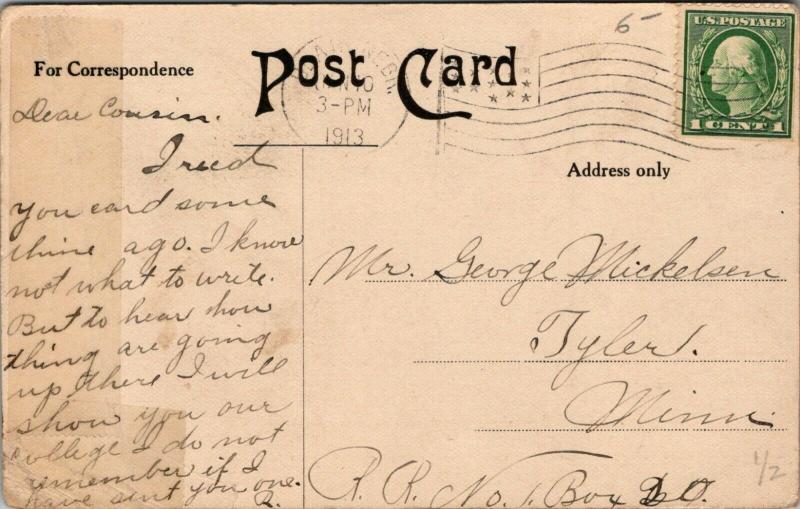 6-
U.S. POSTAGE
1 CENT 1
For Correspondence
Post Card
3-PM
1913
Address only
Dear Cousin.
I recd
you card some
thime ago. I know
not what to write.
But to hear how
thing are going
up there I will
show you our
college I do not
remember if I
have sent you one.
R.
Mr. George Mickelsen
Tyler.
Minn.
R. R. No. 1. Box 20.
1/2